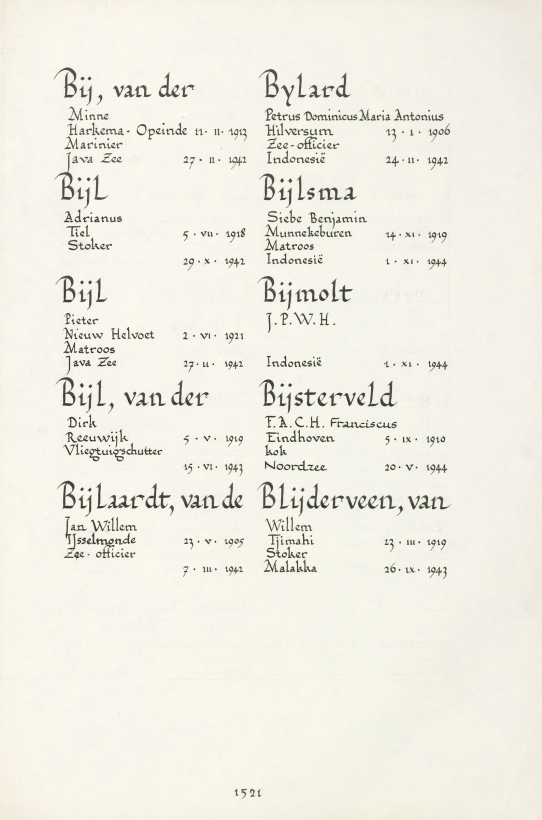 Bij, van der
Minne
Harkema - Opeinde 11 · 11 · 1913
Marinier
Java Zee 27 · 11 · 1942
Bijl
Adrianus
Tiel 5 · VII · 1918
Stoker
29 · X · 1942
Bijl
Pieter
Nieuw Helvoet 2 · VI · 1921
Matroos
Java Zee 27 · 11 · 1942
Bijl, van der
Dirk
Reeuwijk 5 · V · 1919
Vliegtuigschutter
15 · VI · 1943
Bijlaardt, van de
Jan Willem
IJsselmonde 23 · V · 1905
Zee - officier
7 · III · 1942
Bylard
Petrus Dominicus Maria Antonius
Hilversum 13 · 1 · 1906
Zee - officier
Indonesië 24 · 11 · 1942
Bijlsma
Siebe Benjamin
Munnekeburen 14 · XI · 1919
Matroos
Indonesië 1 · XI · 1944
Bijmolt
J. P. W. H.
Indonesië 1 · XI · 1944
Bijsterveld
F. A. C. H. Franciscus
Eindhoven 5 · IX · 1910
kok
Noordzee 20 · V · 1944
Blijderveen, van
Willem
Tjimahi 23 · III · 1919
Stoker
Malakka 26 · IX · 1943
1521